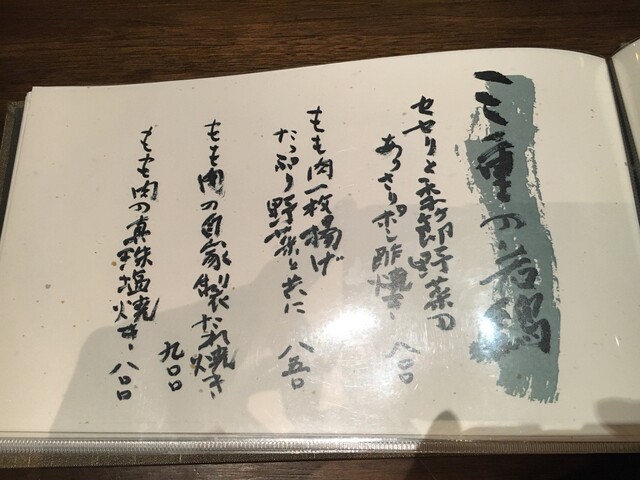 三重の若鶏
セセリと季節野菜の
あっさりポン酢焼き 八〇〇
もも肉一枚揚げ
たっぷり野菜と共に 八五〇
もも肉の自家製たれ焼き
九〇〇
もも肉の真珠塩焼き 八〇〇